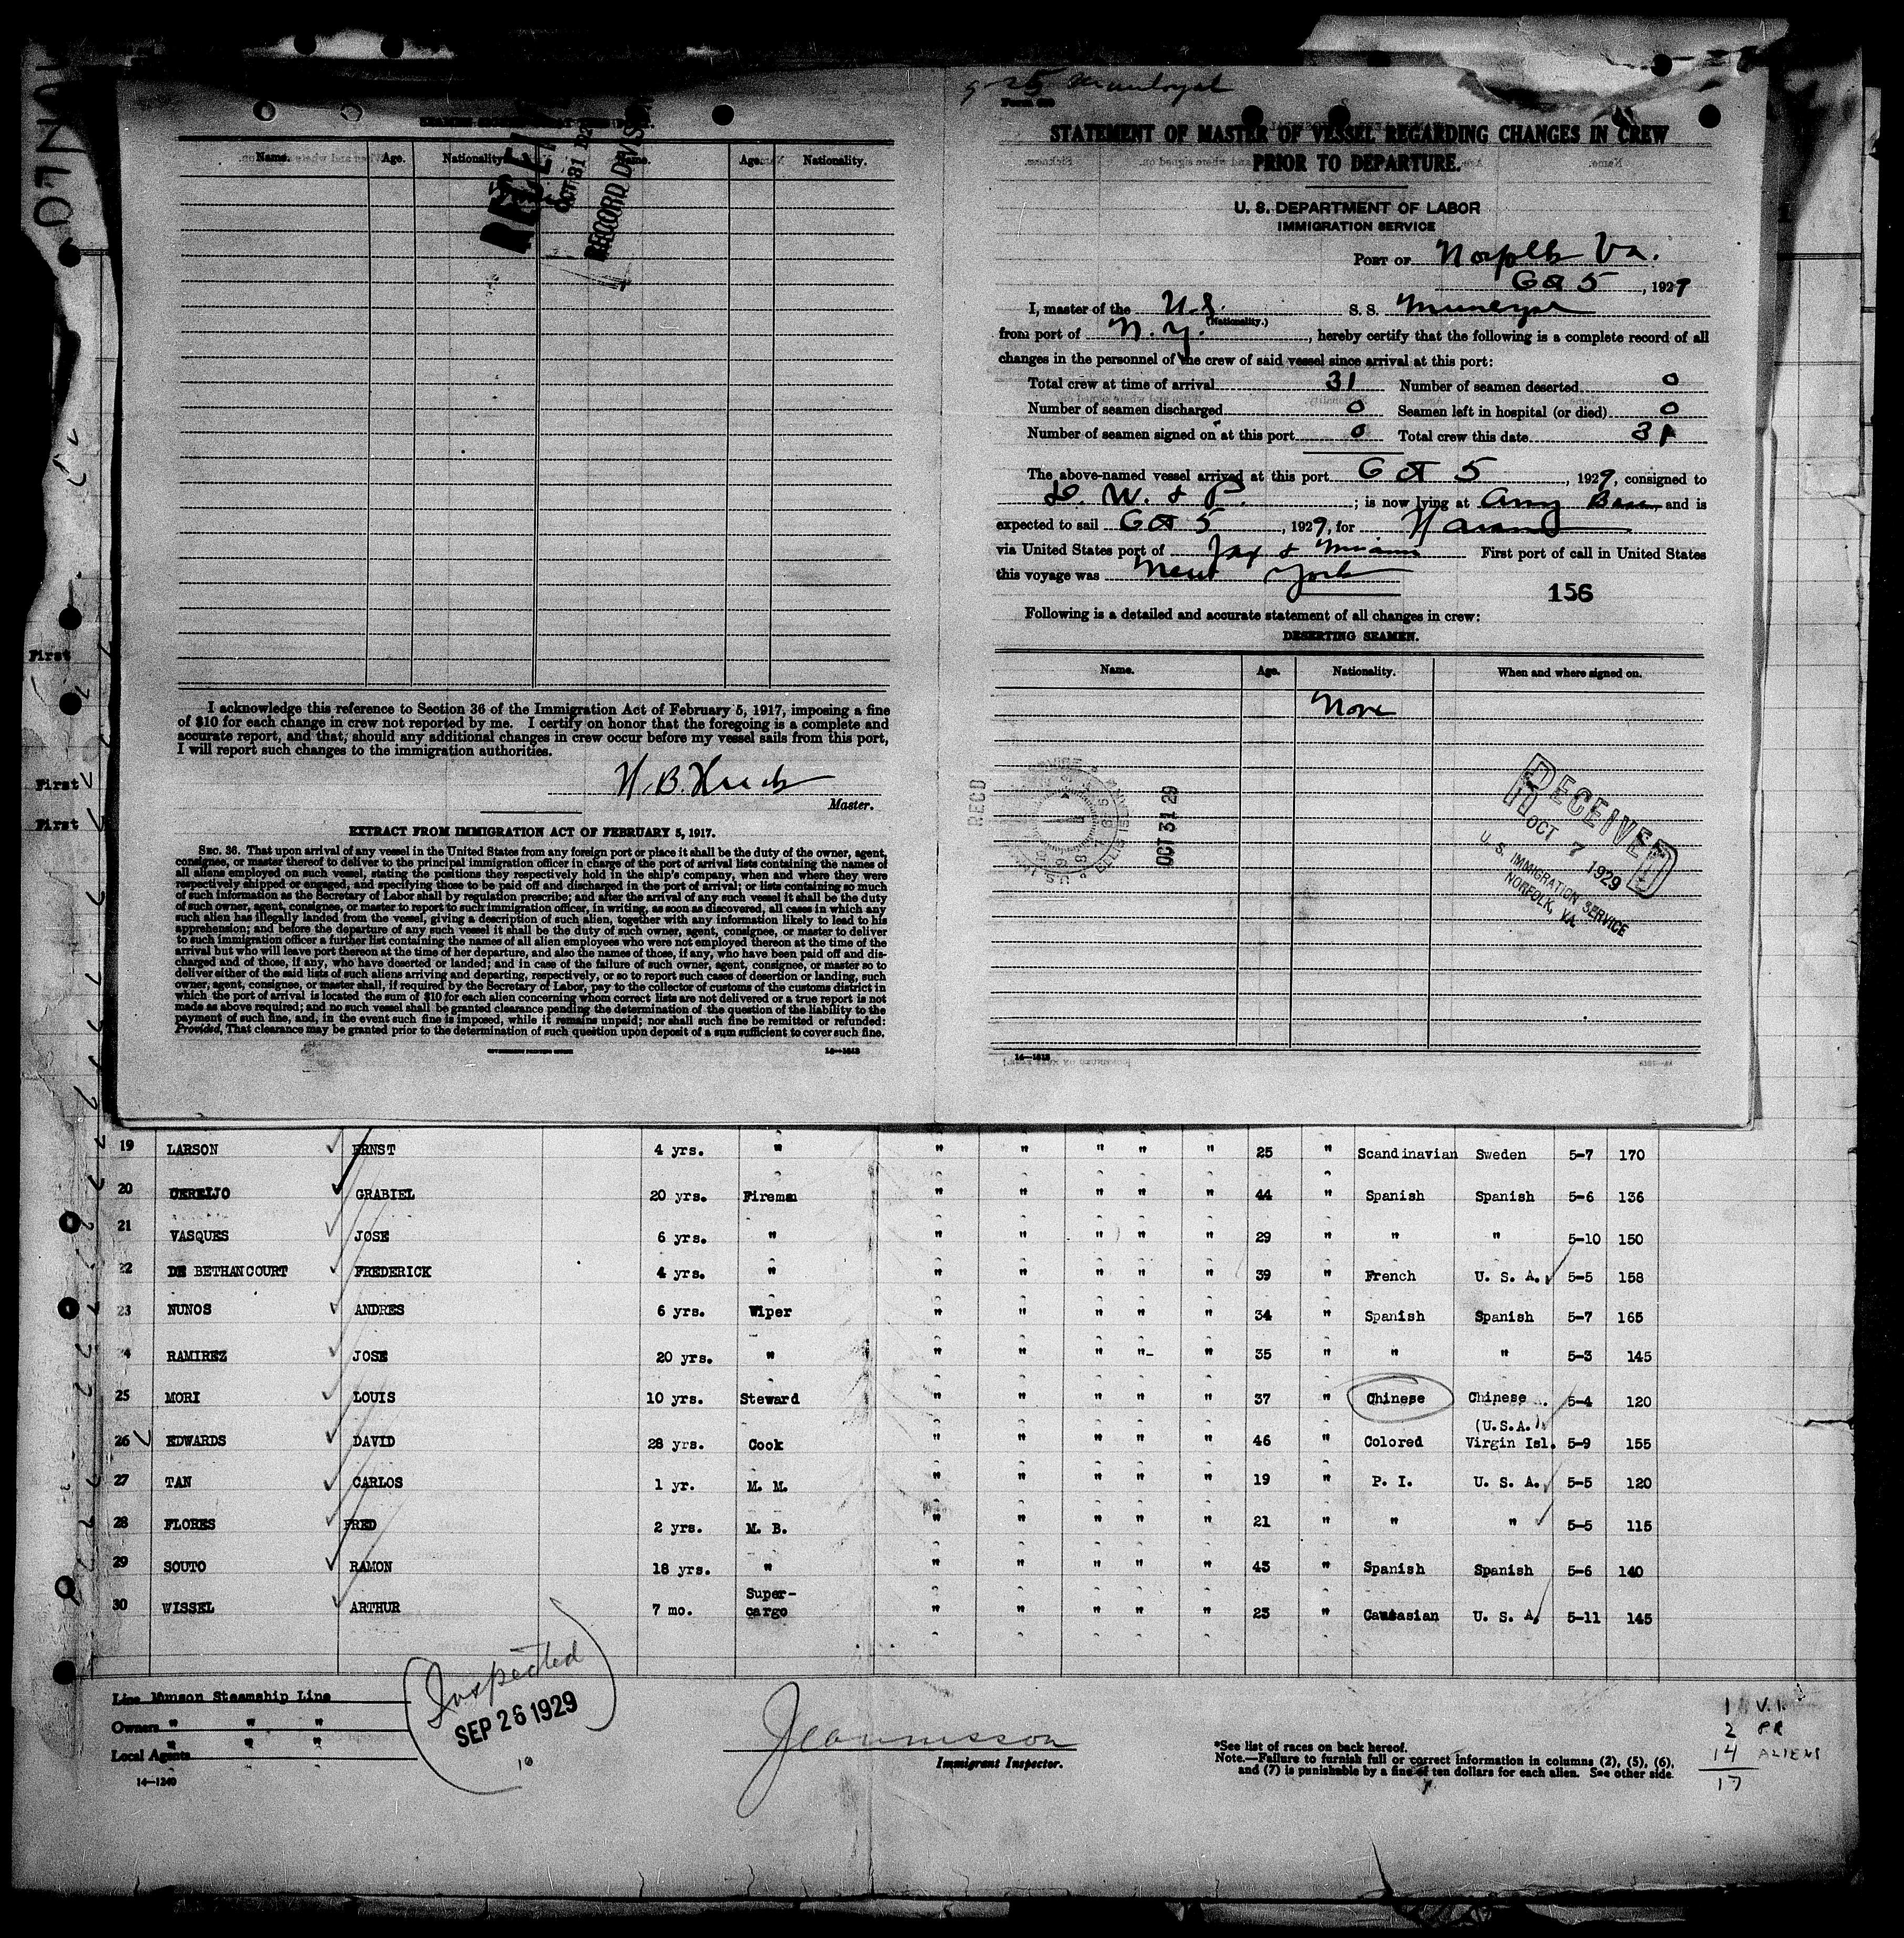 Name. Age. Nationality. Name. Age. Nationality.
OCT 31 192
RECORD DIVISION
I acknowledge this reference to Section 36 of the Immigration Act of February 5, 1917, imposing a fine
of $10 for each change in crew not reported by me. I certify on honor that the foregoing is a complete and
accurate report, and that, should any additional changes in crew occur before my vessel sails from this port,
I will report such changes to the immigration authorities.
Master.
EXTRACT FROM IMMIGRATION ACT OF FEBRUARY 5, 1917.
SEC. 36. That upon arrival of any vessel in the United States from any foreign port or place it shall be the duty of the owner, agent,
consignee, or master thereof to deliver to the principal immigration officer in charge of the port of arrival lists containing the names of
all aliens employed on such vessel, stating the positions they respectively hold in the ship's company, when and where they were
respectively shipped or engaged, and specifying those to be paid off and discharged in the port of arrival; or lists containing so much
of such information as the Secretary of Labor shall by regulation prescribe; and after the arrival of any such vessel it shall be the duty
of such owner, agent, consignee, or master to report to such immigration officer, in writing, as soon as discovered, all cases in which any
such alien has illegally landed from the vessel, giving a description of such alien, together with any information likely to lead to his
apprehension; and before the departure of any such vessel it shall be the duty of such owner, agent, consignee, or master to deliver
to such immigration officer a further list containing the names of all alien employees who were not employed thereon at the time of the
arrival but who will leave port thereon at the time of her departure, and also the names of those, if any, who have been paid off and dis-
charged and of those, if any, who have deserted or landed; and in case of the failure of such owner, agent, consignee, or master so to
deliver either of the said lists of such aliens arriving and departing, respectively, or so to report such cases of desertion or landing, such
owner, agent, consignee, or master shall, if required by the Secretary of Labor, pay to the collector of customs of the customs district in
which the port of arrival is located the sum of $10 for each alien concerning whom correct lists are not delivered or a true report is not
made as above required; and no such vessel shall be granted clearance pending the determination of the question of the liability to the
payment of such fine, and, in the event such fine is imposed, while it remains unpaid; nor shall such fine be remitted or refunded:
Provided, That clearance may be granted prior to the determination of such question upon deposit of a sum sufficient to cover such fine.
GOVERNMENT PRINTING OFFICE 14—1613
STATEMENT OF MASTER OF VESSEL REGARDING CHANGES IN CREW
PRIOR TO DEPARTURE.
U. S. DEPARTMENT OF LABOR
IMMIGRATION SERVICE
PORT OF Norfolk Va.
Oct 5, 1929
I, master of the U.S. S. S. Munloyal
(Nationality.)
from port of N. Y., hereby certify that the following is a complete record of all
changes in the personnel of the crew of said vessel since arrival at this port:
Total crew at time of arrival 31 Number of seamen deserted 0
Number of seamen discharged 0 Seamen left in hospital (or died) 0
Number of seamen signed on at this port 0 Total crew this date 31
The above-named vessel arrived at this port Oct 5, 1929, consigned to
W. & P.; is now lying at Army Base, and is
expected to sail Oct 5, 1929, for Havana
via United States port of Jax & Miami First port of call in United States
this voyage was New York
156
Following is a detailed and accurate statement of all changes in crew:
DESERTING SEAMEN.
Name. Age. Nationality. When and where signed on.
None
RECD
OCT 31 29
RECEIVED
OCT 7 1929
U. S. IMMIGRATION SERVICE
NORFOLK, VA.
14—1613
First
First
First
19 LARSON ERNST 4 yrs. " " " " " " 25 " Scandinavian Sweden 5-7 170
20 CERELJO GRABIEL 20 yrs. Fireman " " " " " 44 " Spanish Spanish 5-6 136
21 VASQUES JOSE 6 yrs. " " " " " " 29 " " " 5-10 150
22 DE BETHANCOURT FREDERICK 4 yrs. " " " " " " 39 " French U. S. A. 5-5 158
23 NUNOS ANDRES 6 yrs. Wiper " " " " " 34 " Spanish Spanish 5-7 165
24 RAMIREZ JOSE 20 yrs. " " " " " " 35 " " " 5-3 145
25 MORI LOUIS 10 yrs. Steward " " " " " 37 " Chinese Chinese 5-4 120
26 EDWARDS DAVID 28 yrs. Cook " " " " " 46 " Colored (U.S.A.) Virgin Isl. 5-9 155
27 TAN CARLOS 1 yr. M. M. " " " " " 19 " P. I. U. S. A. 5-5 120
28 FLORES FRED 2 yrs. M. B. " " " " " 21 " " " 5-5 115
29 SOUTO RAMON 18 yrs. " " " " " " 43 " Spanish Spanish 5-6 140
30 WISSEL ARTHUR 7 mo. Super-cargo " " " " " 23 " Caucasian U. S. A. 5-11 145
Line Munson Steamship Line
Owners " " "
Local Agents " " "
14—1240
Inspected
SEP 26 1929
Immigrant Inspector.
*See list of races on back hereof.
Note.—Failure to furnish full or correct information in columns (2), (5), (6),
and (7) is punishable by a fine of ten dollars for each alien. See other side.
1 V.I.
2 P.R
14 ALIENS
17